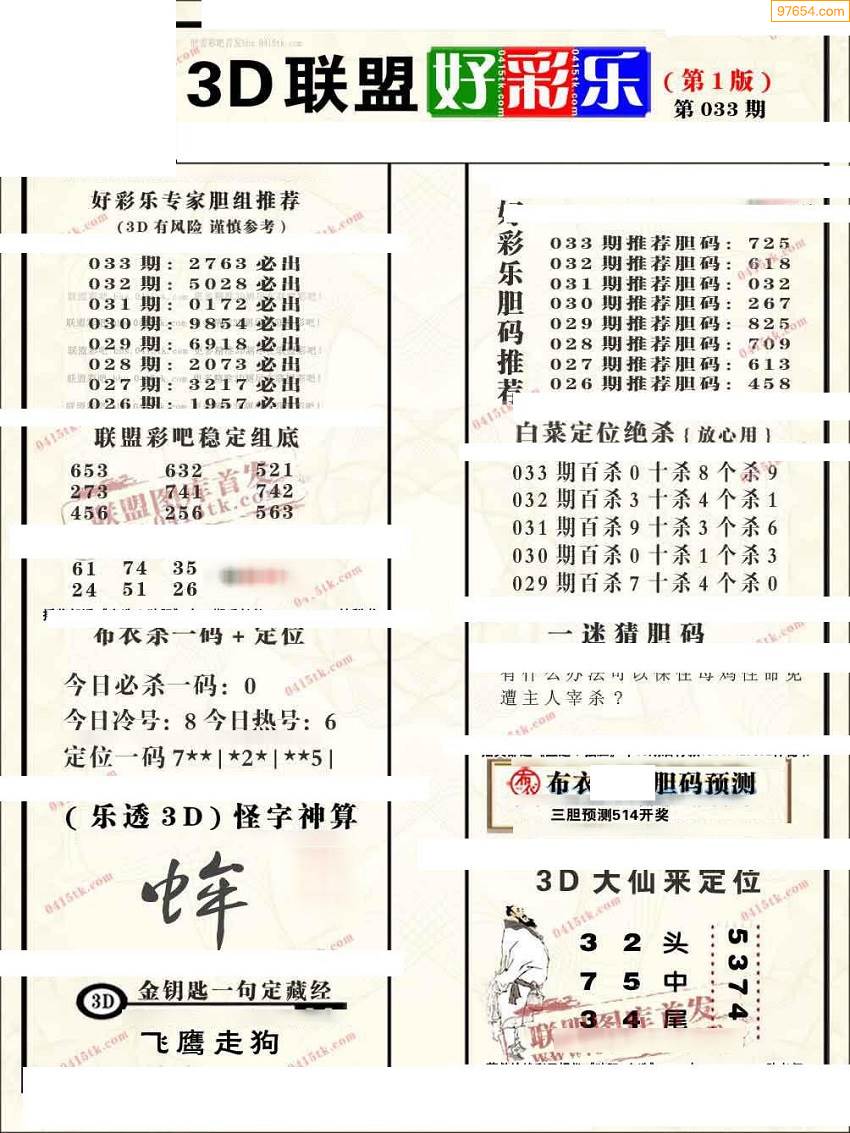 97654.com
3D联盟好彩乐
(第1版)
第033期
好彩乐专家胆组推荐
(3D有风险 谨慎参考)
033期: 2763必出
032期: 5028必出
031期: 0172必出
030期: 9854必出
029期: 6918必出
028期: 2073必出
027期: 3217必出
026期: 1957必出
联盟彩吧稳定组底
653 632 521
273 741 742
456 256 563
61 74 35
24 51 26
布衣杀一码+定位
今日必杀一码: 0
今日冷号: 8 今日热号: 6
定位一码 7**|*2*|**5|
(乐透3D)怪字神算
3D 金钥匙一句定藏经
飞鹰走狗
好彩乐胆码推荐
033期推荐胆码: 725
032期推荐胆码: 618
031期推荐胆码: 032
030期推荐胆码: 267
029期推荐胆码: 825
028期推荐胆码: 709
027期推荐胆码: 613
026期推荐胆码: 458
白菜定位绝杀{放心用}
033期百杀0十杀8个杀9
032期百杀3十杀4个杀1
031期百杀9十杀3个杀6
030期百杀0十杀1个杀3
029期百杀7十杀4个杀0
一迷猜胆码
有什么办法可以保住母鸡性命免
遭主人宰杀?
布衣 胆码预测
三胆预测514开奖
3D大仙来定位
3 2 头
7 5 中
3 4 尾
5374
联盟图库首发
0415tk.com